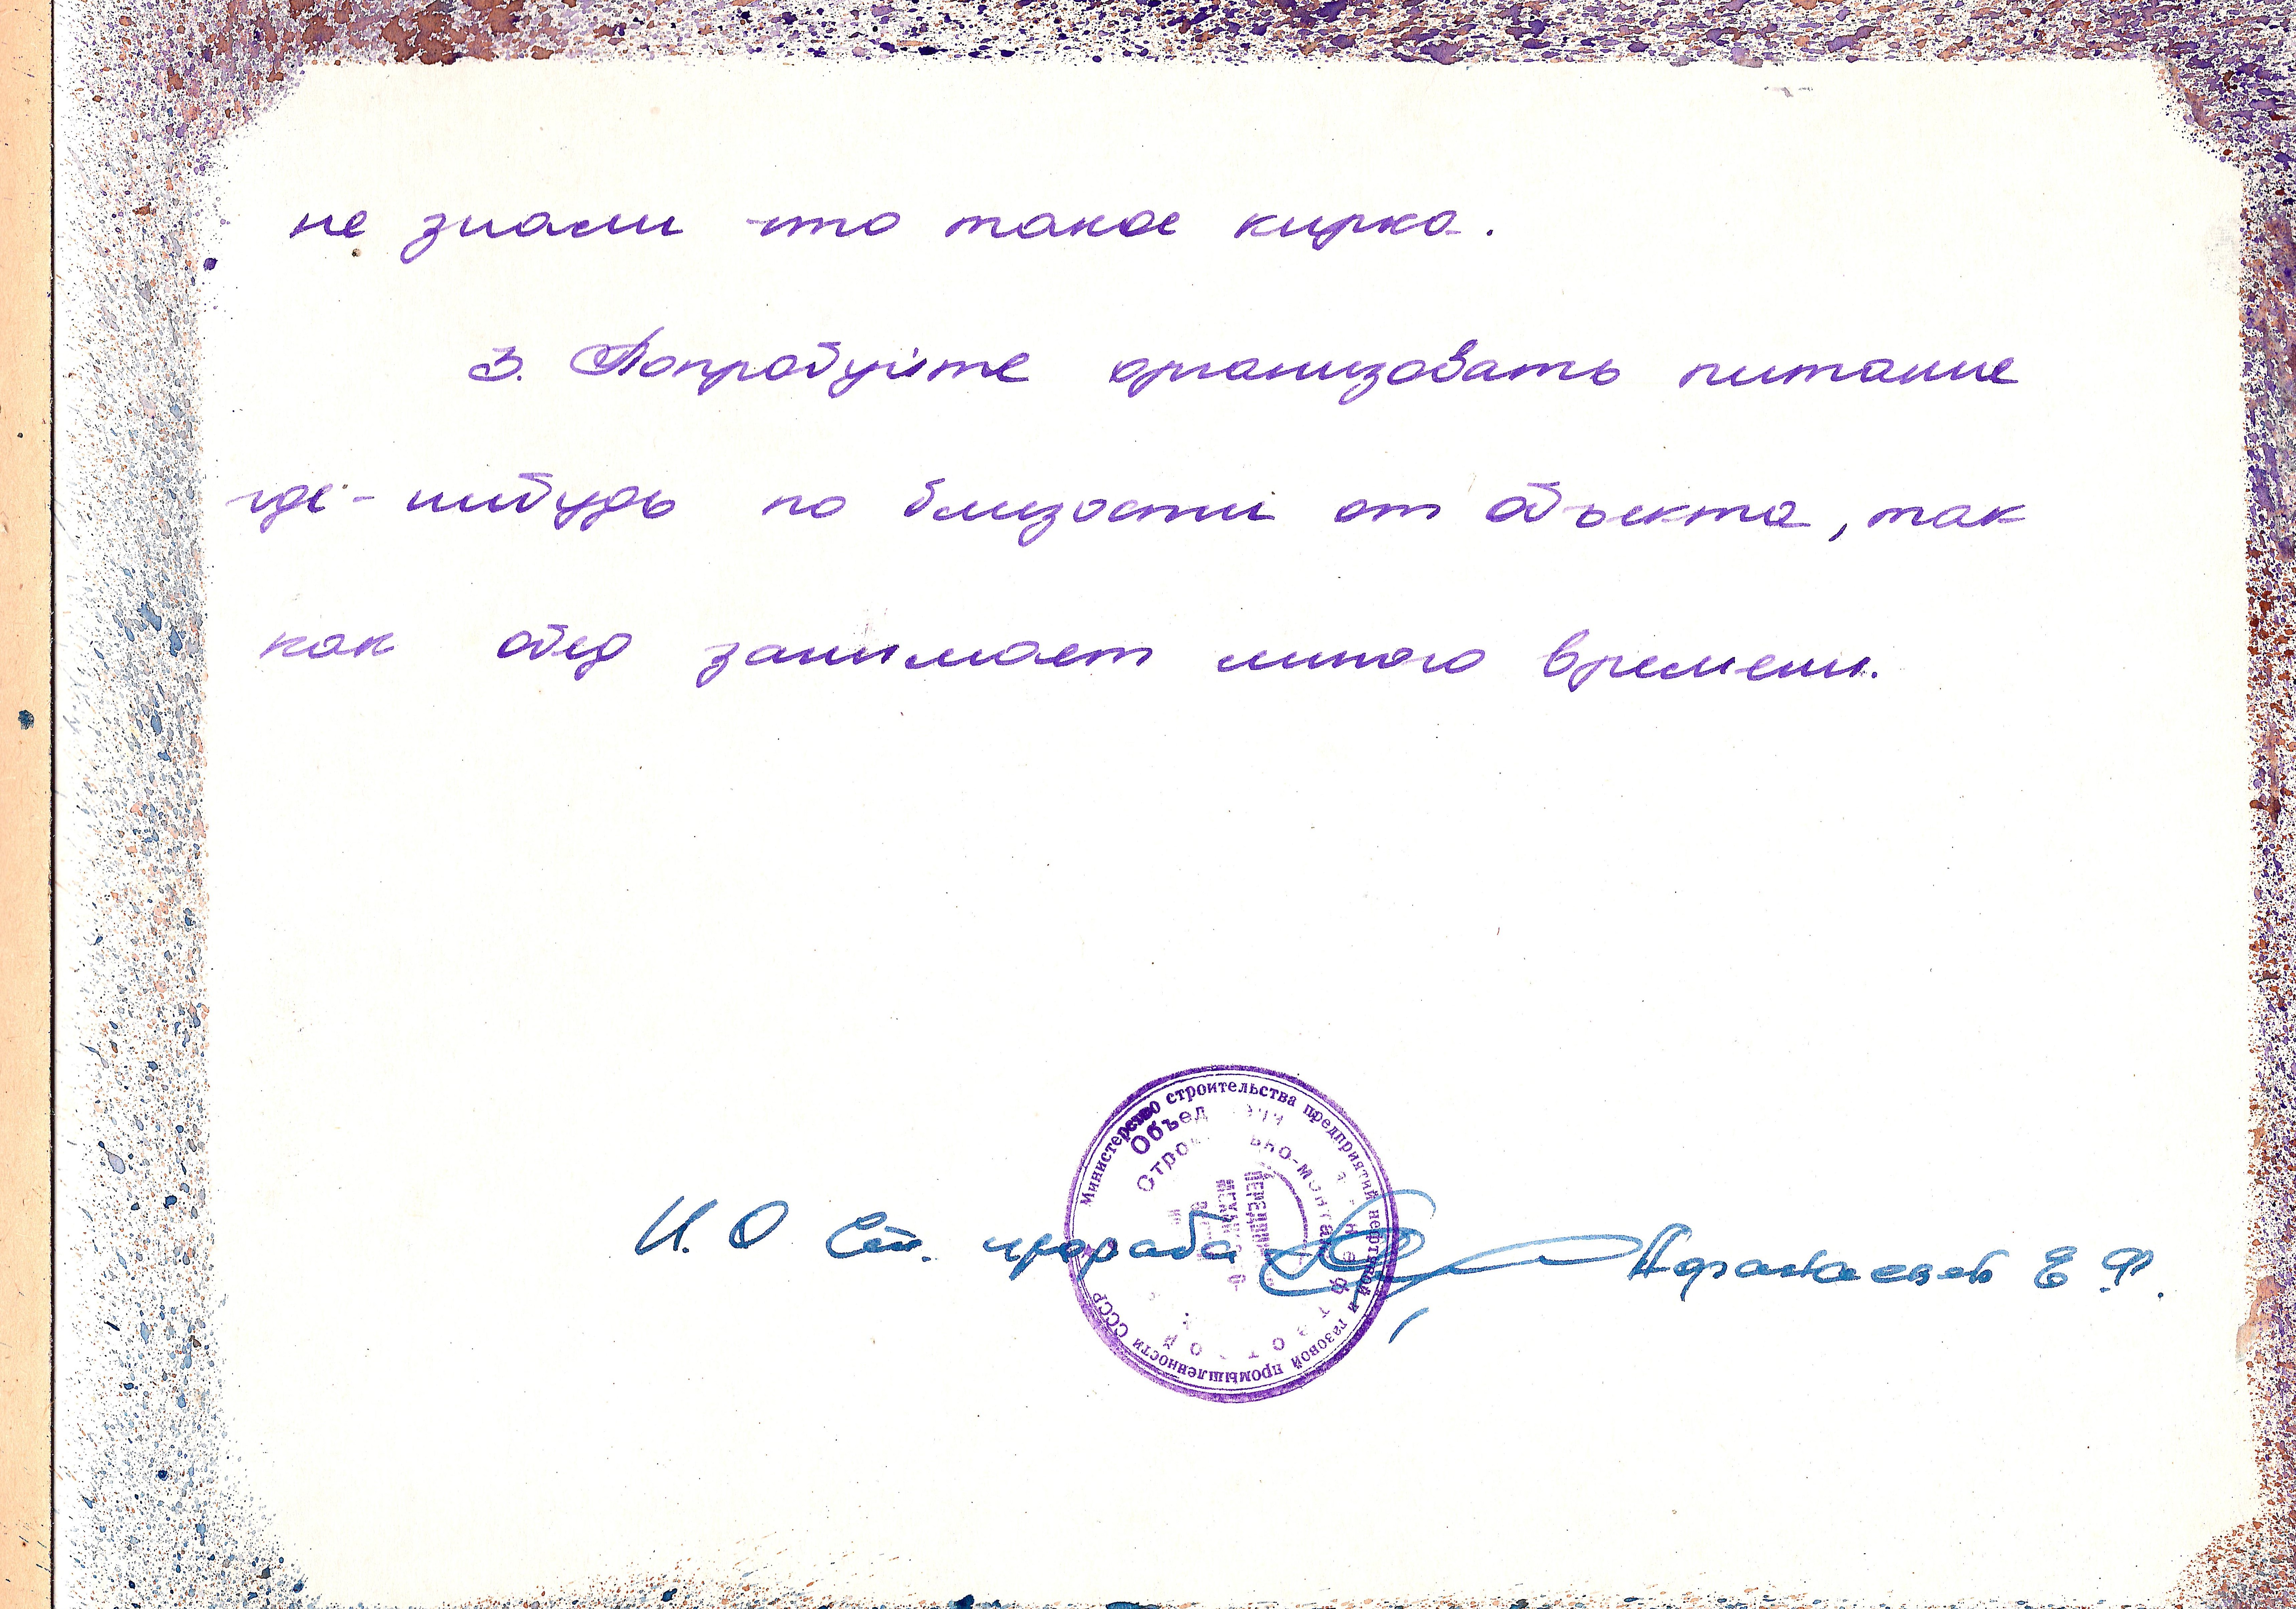 не знали что такое кирка.
3. Попробуйте организовать питание
где-нибудь по близости от объекта, так
как обед занимает много времени.
Министерство строительства предприятий нефтяной и газовой промышленности СССР
И. О Ст. прораба Е Ф.